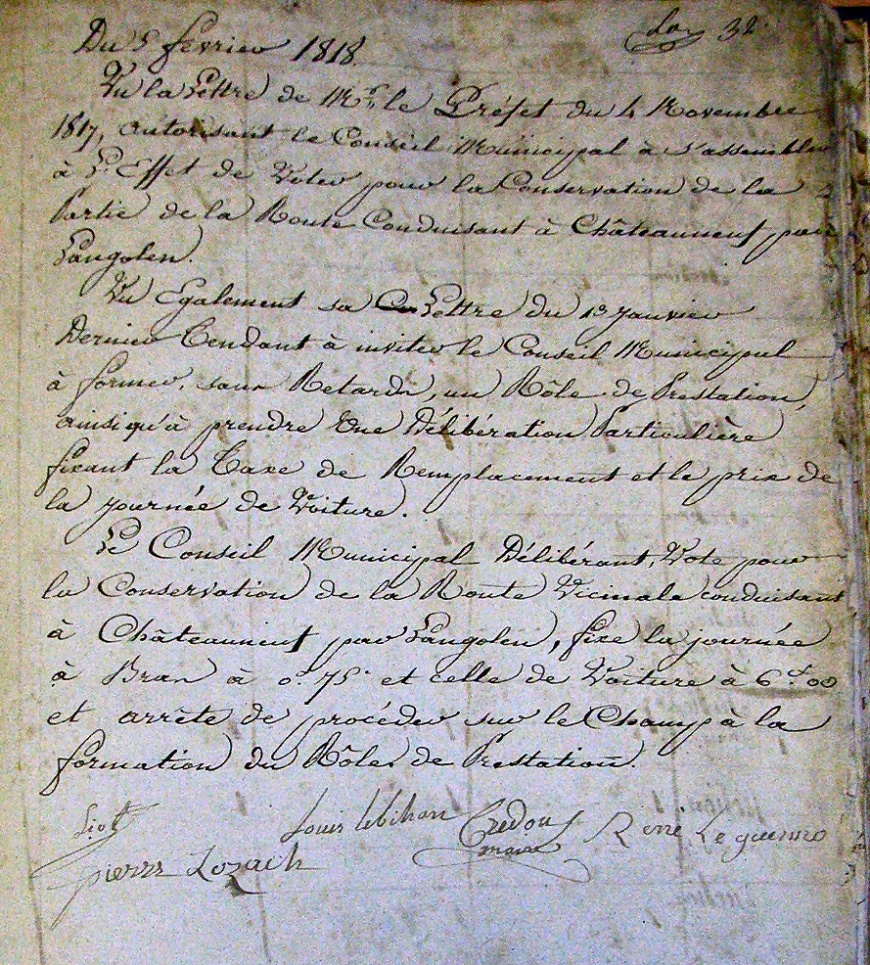 Du 5 fevrier 1818.
32.
Vu la Lettre de Mr. le Préfet du 4 Novembre
1817, autorisant le Conseil Municipal à s'assembler
à L'Effet de Voter pour la Conservation de la
Partie de la Route Conduisant à Châteauneuf par
Langolen.
Vu Egalement sa Lettre du 13 janvier
Dernier tendant à inviter le Conseil Municipal
à former, sans Retards, un Rôle de Prestation,
ainsi qu'à prendre Une Délibération Particulière
fixant la Taxe de Remplacement et le prix de
la journée de Voiture.
Le Conseil Municipal Délibérant, Vote pour
la Conservation de la Route Vicinale conduisant
à Châteauneuf par Langolen, fixe la journée
à Bras à 0f. 75c et celle de Voiture à 6f. 00
et arrête de procéder sur le Champ à la
formation du Rôles de Prestation.
Liot Louis le bihan Credou René Le guenno
maire
pierre Lozach